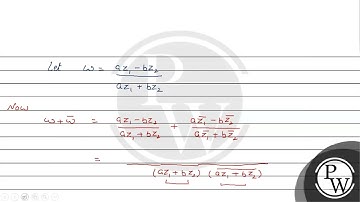 Let ω = az₁ - bz₂ / az₁ + bz₂
Now
ω + ω̅ = az₁ - bz₂ / az₁ + bz₂ + az̅₁ - bz̅₂ / az̅₁ + bz̅₂
= / (az₁ + bz₂) (az̅₁ + bz̅₂)
P
W